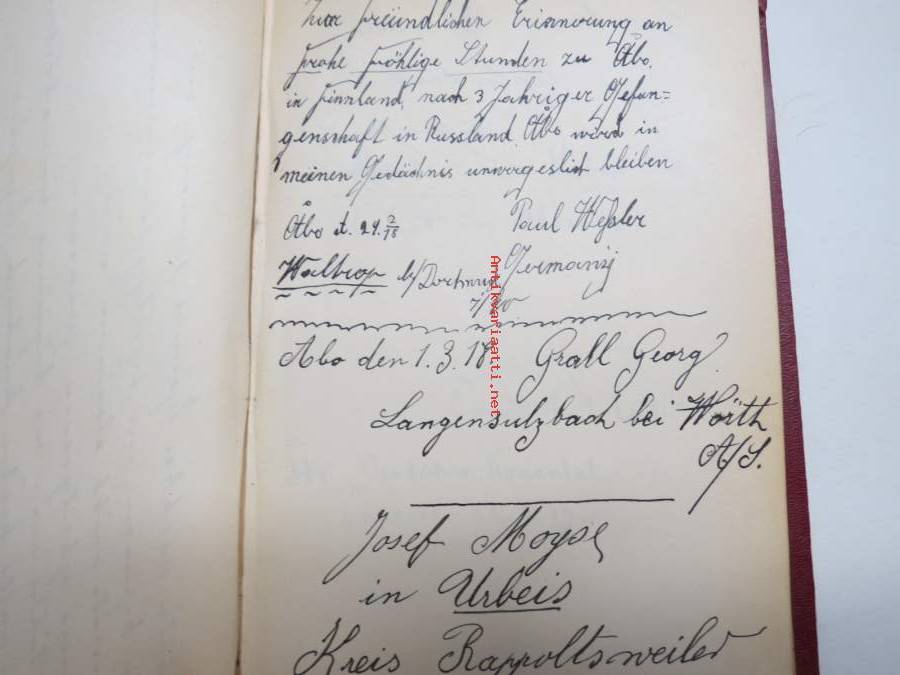 Zur freundlichen Erinnerung an
frohe fröhlige Stunden zu Åbo,
in Finnland, nach 3 Jahriger Gefan=
genschaft in Russland. Åbo wird in
meinen Gedächnis unvergeslich bleiben
Åbo d. 24. 2/18 Paul Weßler
Waltrop b/Dortmund Germany
Abo den 1.3.18 Grall Georg
Langensulzbach bei Wörth
A/S.
Josef Moyse
in Urbeis
Kreis Rappoltsweiler
Antikvariaatti.net